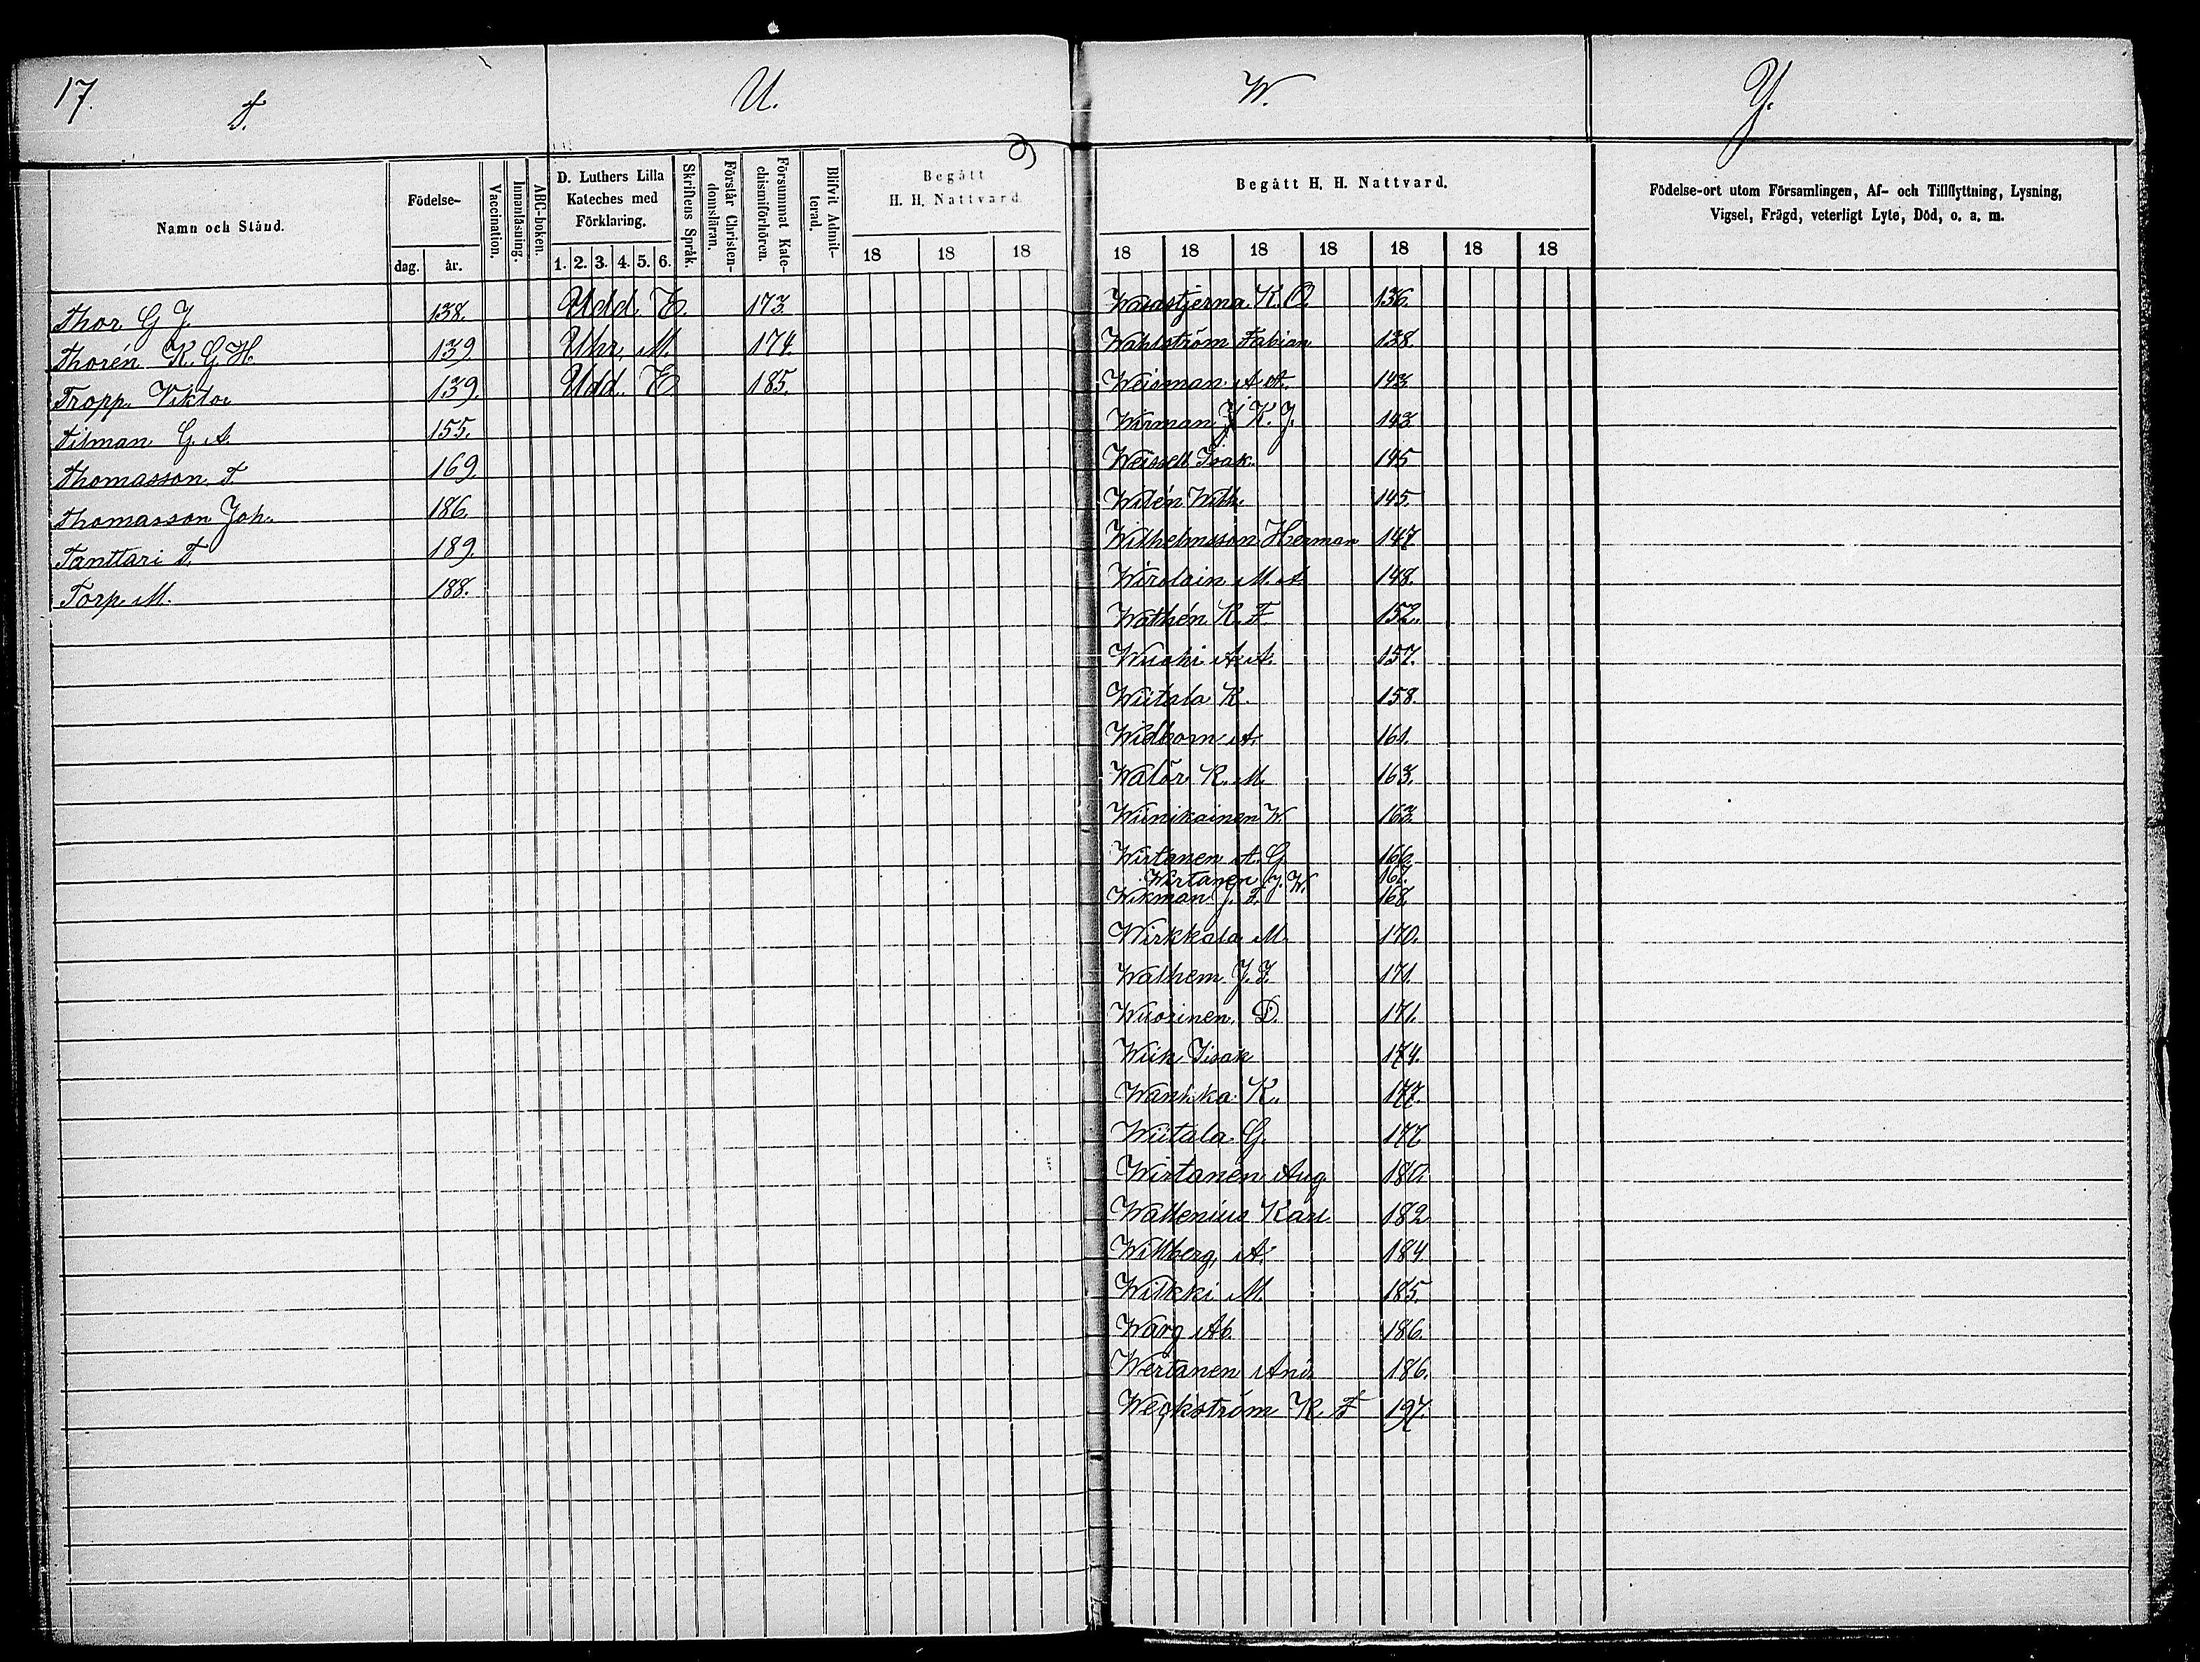 17. T. U. W. Y.
Namn och Stånd.
Födelse-
dag. år.
Vaccination.
Innanläsning.
ABC-boken.
D. Luthers Lilla
Kateches med
Förklaring.
1. 2. 3. 4. 5. 6.
Skriftens Språk.
Förstår Christen-
domsläran.
Försummat Kate-
chismiförhören.
Blifvit Admit-
terad.
Begått
H. H. Nattvard.
18 18 18
Thor G J. 138.
Thorén K. G H. 139
Tropp. Viktor 139.
Tilman G. A. 155.
Thomasson. F. 169.
Thomasson Joh. 186.
Tanttari F. 189.
Torp. M. 188.
Udd. E. 173.
Uhr. M. 174.
Udd. E. 185.
Begått H. H. Nattvard.
18 18 18 18 18 18 18
Födelse-ort utom Församlingen, Af- och Tillflyttning, Lysning,
Vigsel, Frägd, veterligt Lyte, Död, o. a. m.
Wasastjerna K. O. 136.
Wahlström Fabian 138.
Weisman. A A. 143
Wirman J K. J. 143
Weissell Isak. 145
Wilén Wilh. 145.
Wilhelmsson Herman 147
Wirolain M. A. 148.
Wathén K. F 152.
A. A. 157.
Wiitala K. 158.
Widbom A. 161.
Walör K. M. 163.
Wiinikainen W. 163.
Wirtanen A. G 166.
Wirtanen J. W. 167.
Wikman J. F. 168.
Wirkkala M. 170.
Wathem J. F. 171.
Wuorinen. D. 171.
Wiik Isak 174.
Wanhka K. 177.
Wiitala G. 177
Wirtanen Aug 180.
Wallenius Karl 182
Willberg, A. 184
Wilkki M. 185.
Warg Ab. 186.
Wertanen And. 186.
Weckström K. F 197.